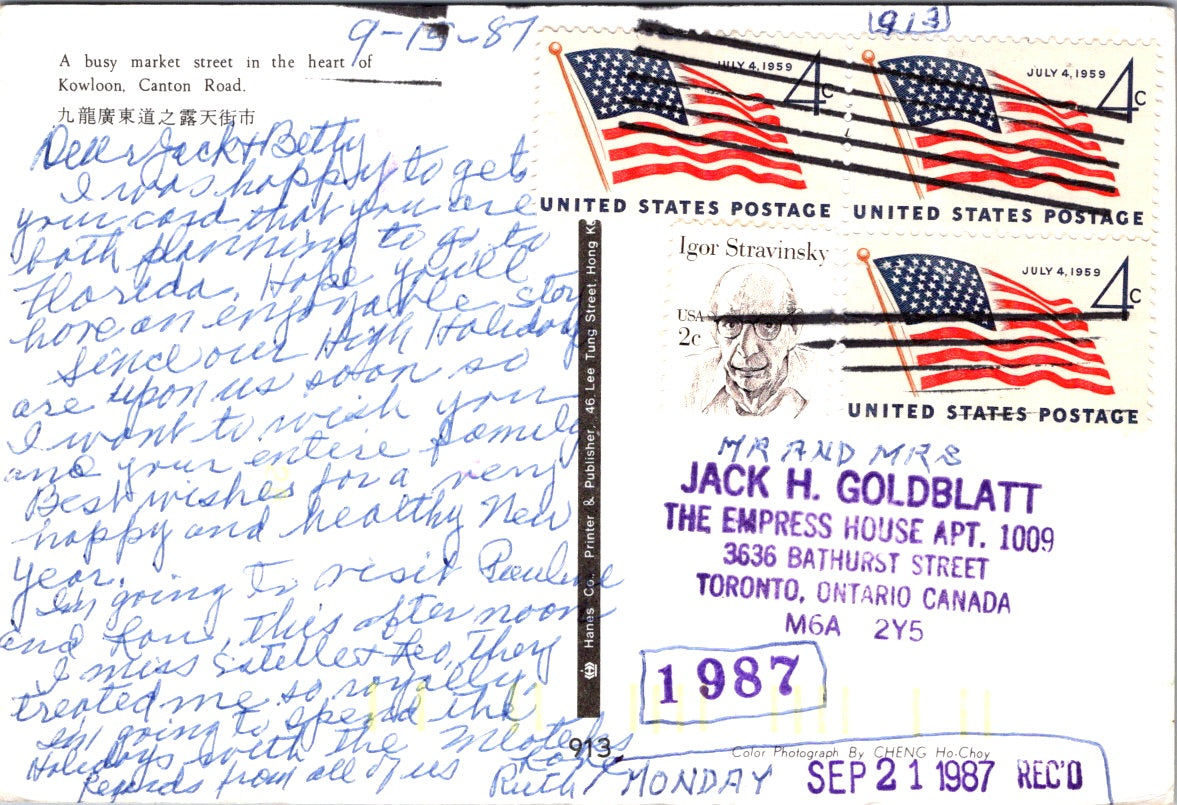 9-15-87
913
A busy market street in the heart of
Kowloon, Canton Road.
九龍廣東道之露天街市
Dear Jack & Betty
I was happy to get
your card that you are
both planning to go to
Florida. Hope you'll
have an enjoyable stay
Since our High Holidays
are upon us soon so
I want to wish you
and your entire family
Best wishes for a very
happy and healthy New
Year.
I'm going to visit Pauline
and Lou, this afternoon
I miss Estelle & Leo, they
treated me so royally,
I'm going to spend the
Holidays with the
Regards from all of us
Love
Ruth
JULY 4, 1959
4c
UNITED STATES POSTAGE
JULY 4, 1959
4c
UNITED STATES POSTAGE
Igor Stravinsky
USA
2c
JULY 4, 1959
4c
UNITED STATES POSTAGE
Hanes Co., Printer & Publisher, 46, Lee Tung Street, Hong Ko
MR AND MRS
JACK H. GOLDBLATT
THE EMPRESS HOUSE APT. 1009
3636 BATHURST STREET
TORONTO, ONTARIO CANADA
M6A 2Y5
1987
913
Color Photograph By CHENG Ho-Choy
MONDAY SEP 21 1987 REC'D